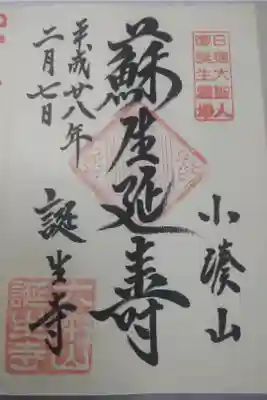 日蓮大聖人
御誕生霊場
小湊山
蘇生延寿
平成廿八年
二月七日
誕生寺
誕生寺